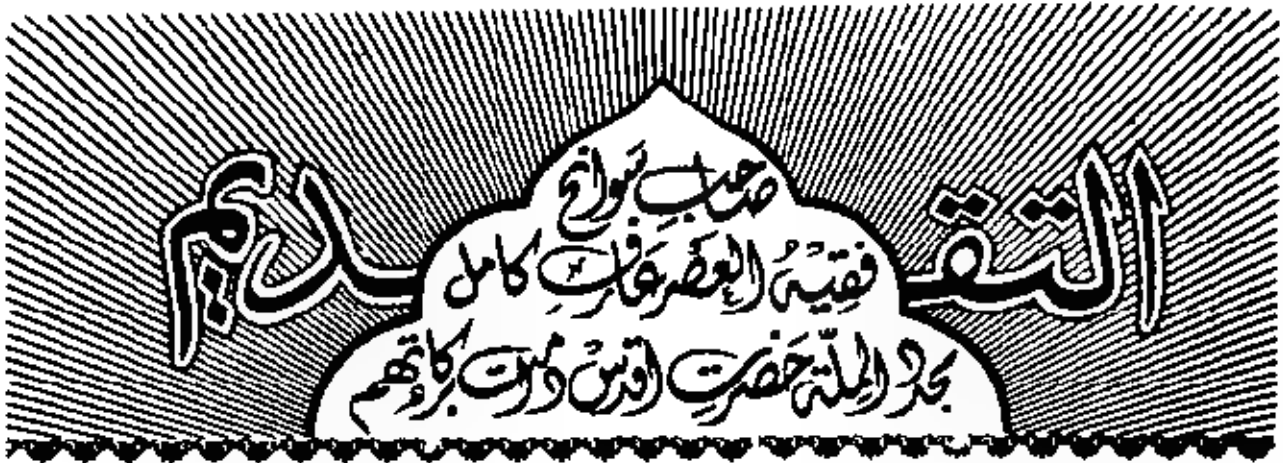 التقدیم
صاحبِ سَوانح
فقیہُ العصر عارفِ کامل
مجدد الملّۃ حضرتِ اقدس دامت برکاتہم